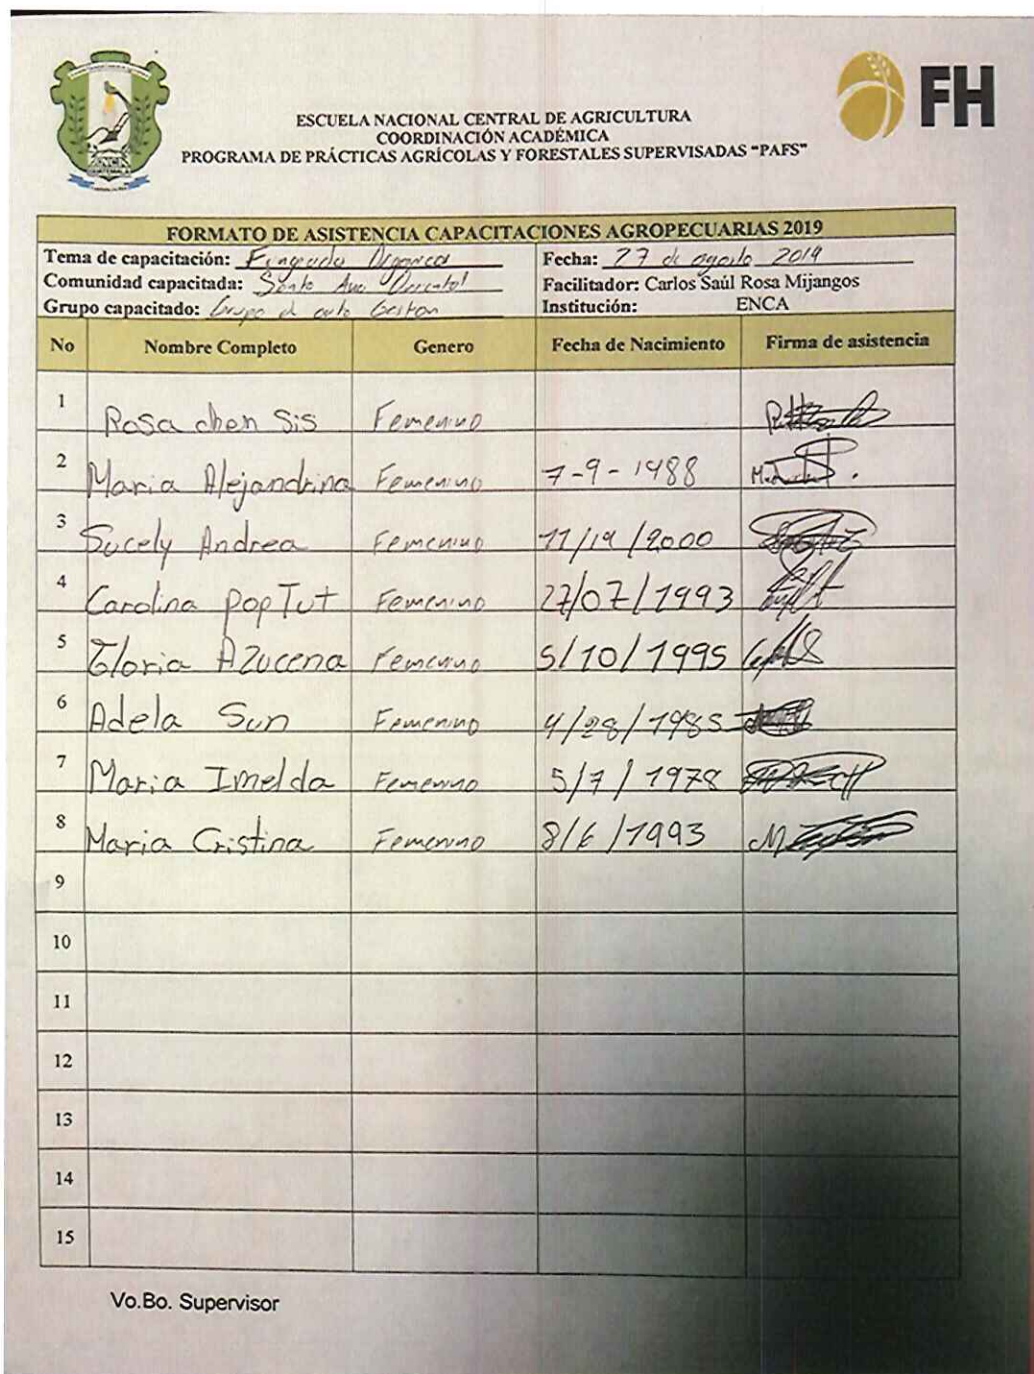 FH
ESCUELA NACIONAL CENTRAL DE AGRICULTURA
COORDINACIÓN ACADÉMICA
PROGRAMA DE PRÁCTICAS AGRÍCOLAS Y FORESTALES SUPERVISADAS “PAFS”
FORMATO DE ASISTENCIA CAPACITACIONES AGROPECUARIAS 2019
Tema de capacitación: Organica Fecha: 27 de agosto 2019
Comunidad capacitada: Santa Ana Facilitador: Carlos Saúl Rosa Mijangos
Grupo capacitado: Grupo de auto Gestion Institución: ENCA
No Nombre Completo Genero Fecha de Nacimiento Firma de asistencia
1 Rosa chen Sis Femenino
2 Maria Alejandrina Femenino 7-9-1988
3 Sucely Andrea Femenino 11/19/2000
4 Carolina Pop Tut Femenino 27/07/1993
5 Gloria Azucena Femenino 5/10/1995
6 Adela Sun Femenino 4/28/1985
7 Maria Imelda Femenino 5/7/1978
8 Maria Cristina Femenino 8/6/1993
9
10
11
12
13
14
15
Vo.Bo. Supervisor